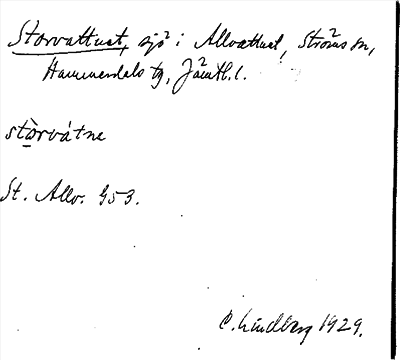 Storvattnet, sjö i Allvattnet, Ströms sn,
Hammerdals tg, Jämtl. l.
stòrvátne
St. Allv. 953.
C. Lindberg 1929.